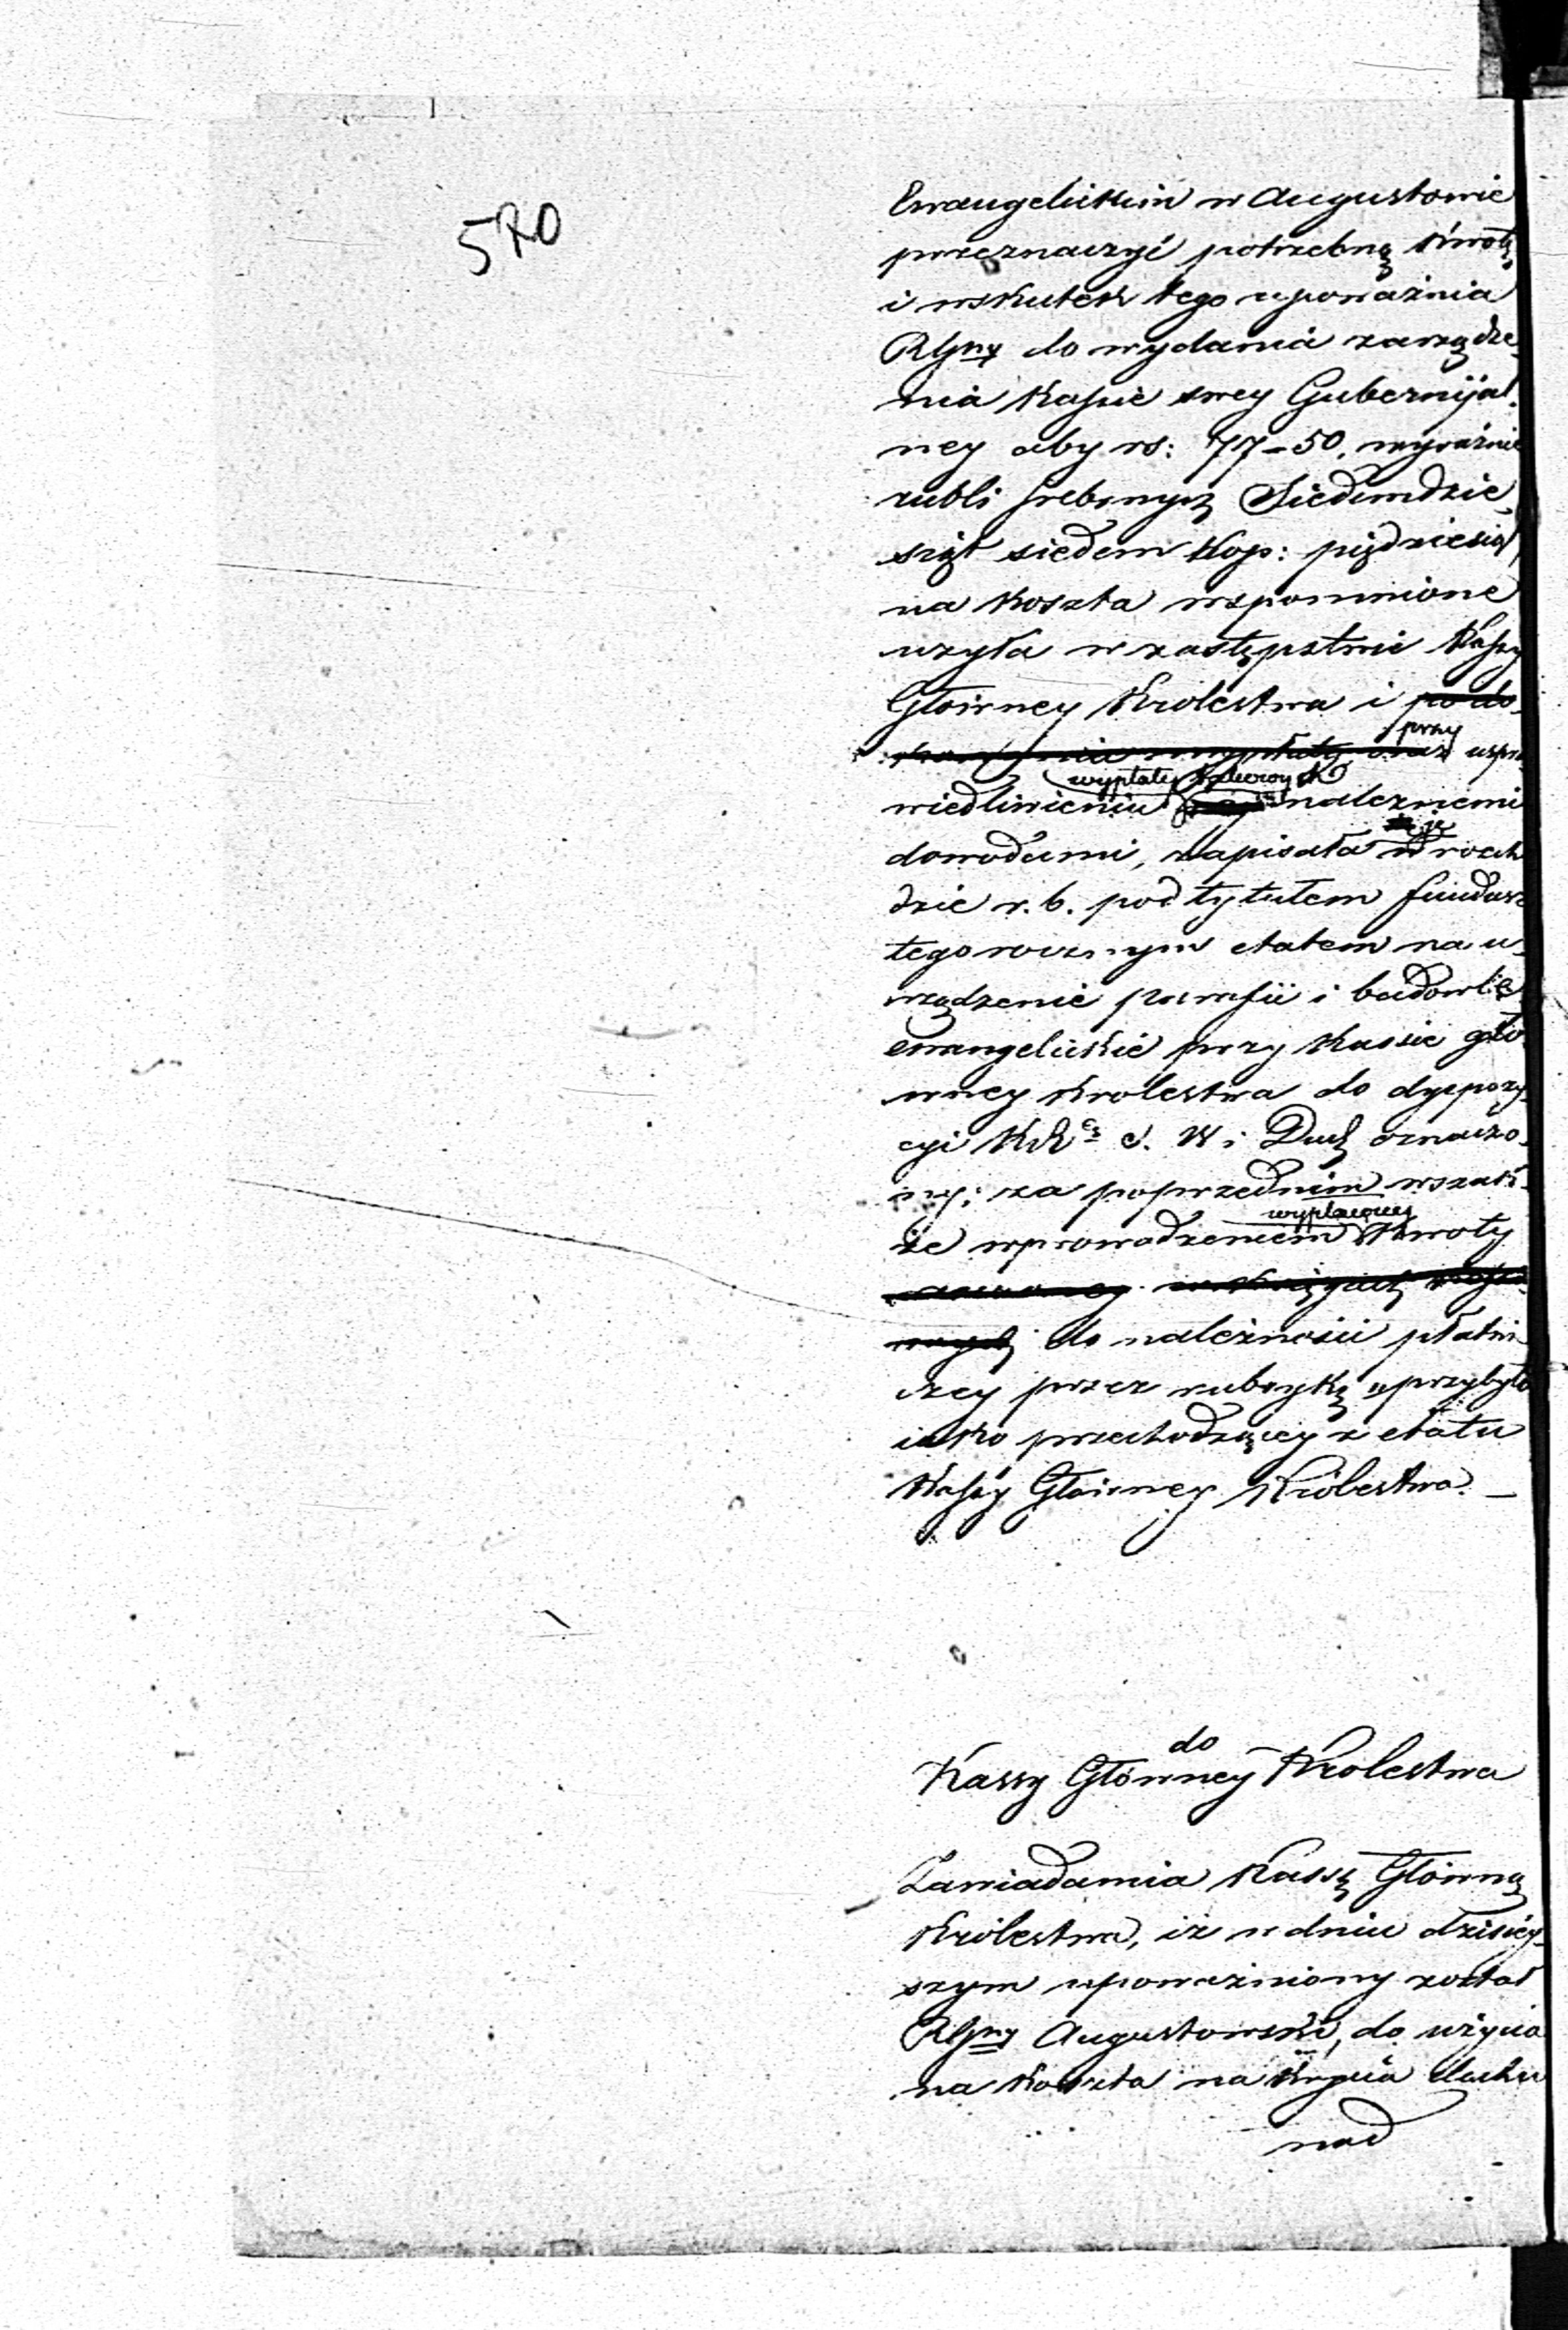 570
Ewangelickim w Augustowie
przeznaczyć potrzebną kwotę
i wskutek tego upoważnia
RGny do wydania zarządze-
nia Kassie swey Gubernijal-
ney aby rs: 77-50. wyraźnie
rubli srebrnych Siedmdzie-
siąt siedem kop: piędziesiąt
na koszta wspomnione
użyła w zastępstwie Kassy
Głównej Krolestwa i po do-
wypłaty oraz przy uspra
wypłaty
wiedliwieniu należnemi
dowodami, zapisała ją w rozch
dzie r. b. pod tytułem fundusz
tegorocznym etatem na u-
rządzenie parafii i budowle
ewangelickie przy Kassie głó
wney Krolestwa do dyspozy-
cyi S. W i Duch oznaczo-
ny; za poprzednim wszak-
wypłaconej
że wprowadzeniem kwoty
w księgach
do należności płatni
czey przez rubrykę przybyło
iako przechodzącey z etatu
Kassy Głowney Królestwa. _
do
Kassy Główney Krolestwa
Zawiadamia Kassę Główną
Królestwa, iż w dniu dzisiey-
szym upoważniony został
RGny Augustowski, do użycia
na koszta na krycia dachu
nad